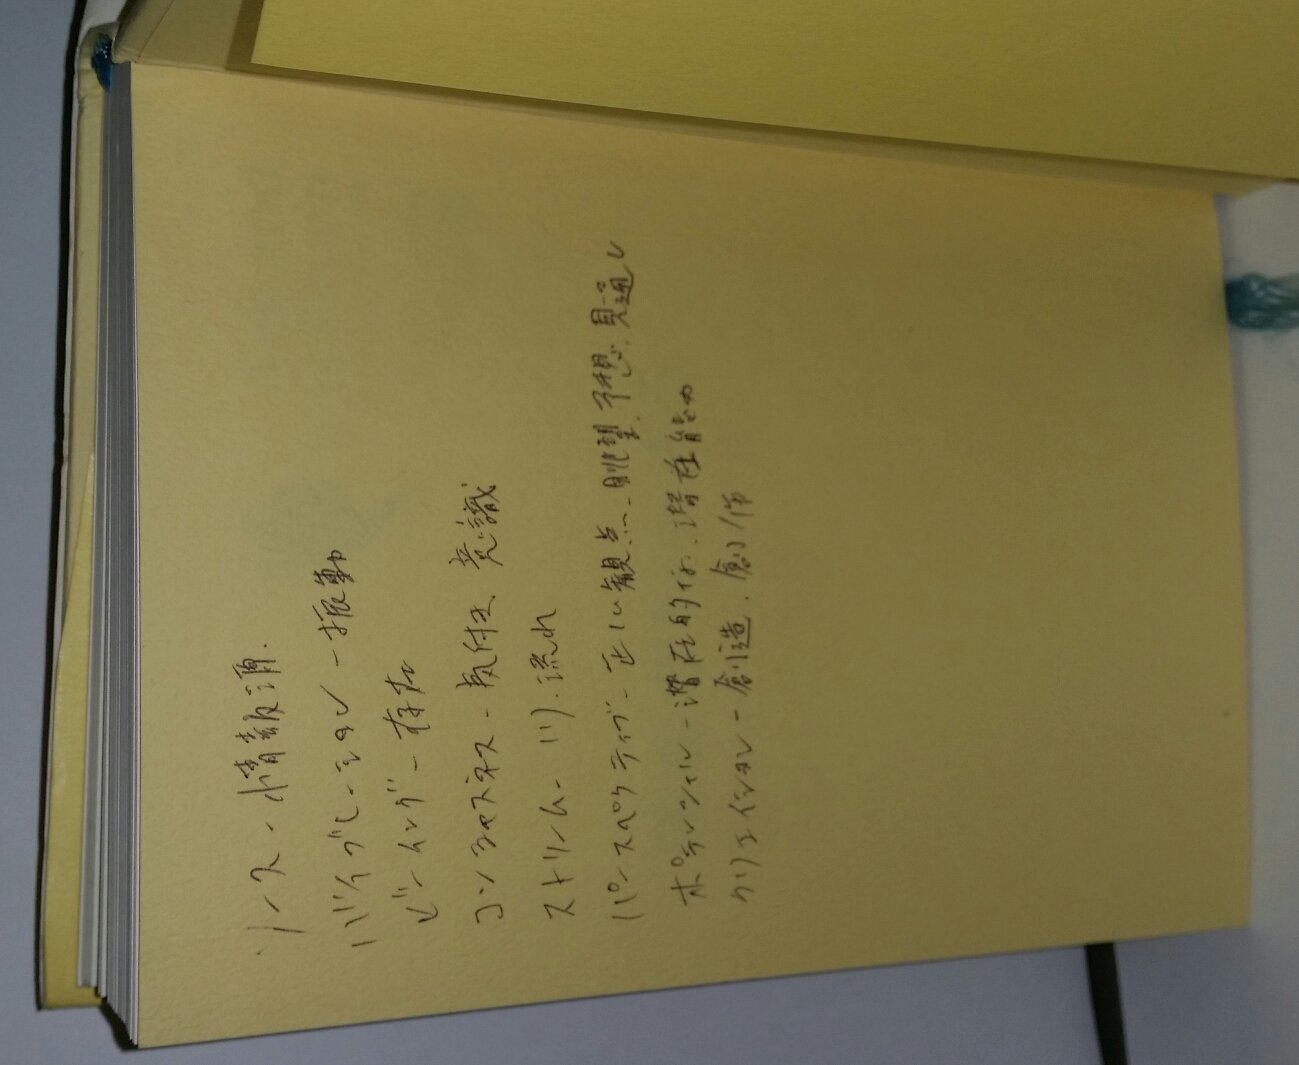 ソース - 情報源.
バイブレーション - 振動
ビーイング - 存在
コンシャスネス - 気付き、意識
ストリーム - 川. 流れ
パースペクティブ - 正しい観点. 眺望. 予想. 見通し
ポテンシャル - 潜在的な. 潜在能力
クリエイション - 創造. 創作